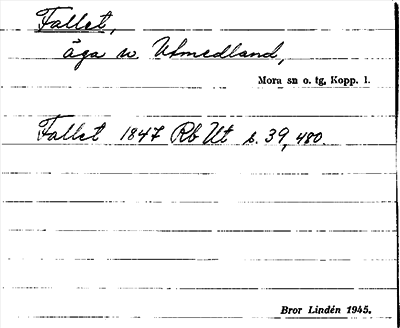 Fallet,
äga n. Utmedland,
Mora sn o. tg, Kopp. l.
Fallet 1847 Rb Ut s. 39, 480.
Bror Lindén 1945.